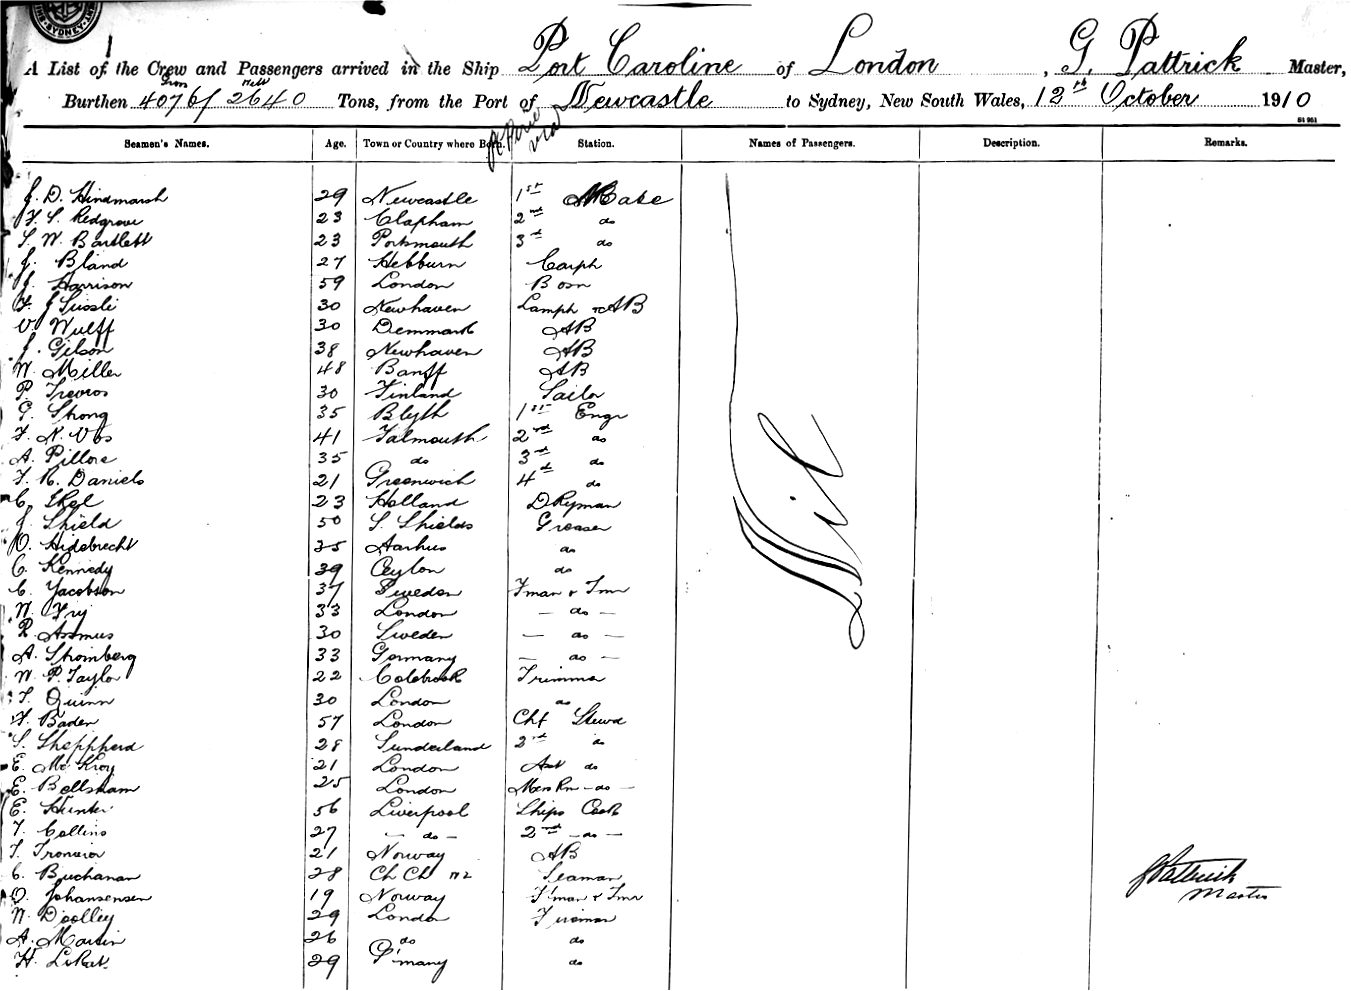 SYDNEY
A List of the Crew and Passengers arrived in the Ship Port Caroline of London, G. Pattrick Master,
Burthen 4076/2640 Tons, from the Port of Newcastle to Sydney, New South Wales, 12th October 1910
via
Seamen's Names. Age. Town or Country where Born. Station. Names of Passengers. Description. Remarks.
J. D. Hindmarsh 29 Newcastle 1st Mate
F. S. Redgrove 23 Clapham 2nd do
S. W. Bartlett 23 Portsmouth 3rd do
J. Bland 27 Hebburn Carp
J. Harrison 59 London Bosn
F. J. 30 Newhaven Lamp & AB
V. Wulff 30 Denmark AB
J. Gibson 38 Newhaven AB
W. Miller 48 Banff AB
P. 30 Finland Sailor
G. Strong 35 Blyth 1st Engr
F. N. 41 Falmouth 2nd do
A. 35 do 3rd do
F. R. Daniels 21 Greenwich 4th do
C. 23 Holland DKyman
J. Shield 50 S. Shields Greaser
O. Hidebrecht 25 Aarhus do
C. Kennedy 39 Ceylon do
C. Yacobson 37 Sweden Fman & Tmr
W. Fry 33 London — do —
R. Assmus 30 Sweden — do —
A. Stromberg 33 Germany — do —
W. P. Taylor 22 Colebrook Trimmer
T. Quinn 30 London do
F. Bader 57 London Chf Stewd
S. Sheppherd 28 Sunderland 2nd do
E. Mc 21 London Ast do
E. Bellsham 25 London Mess Rm - do -
E. Hunter 56 Liverpool Ships Cook
T. Collins 27 - do - 2nd - do -
T. 21 Norway AB
C. Buchanan 28 Ch Ch NZ Seaman
O. Johansensen 19 Norway F'man & Tmr
W. Doolley 29 London Fireman
A. Martin 26 do do
H. 29 G'many do
Nil
G Pattrick
Master